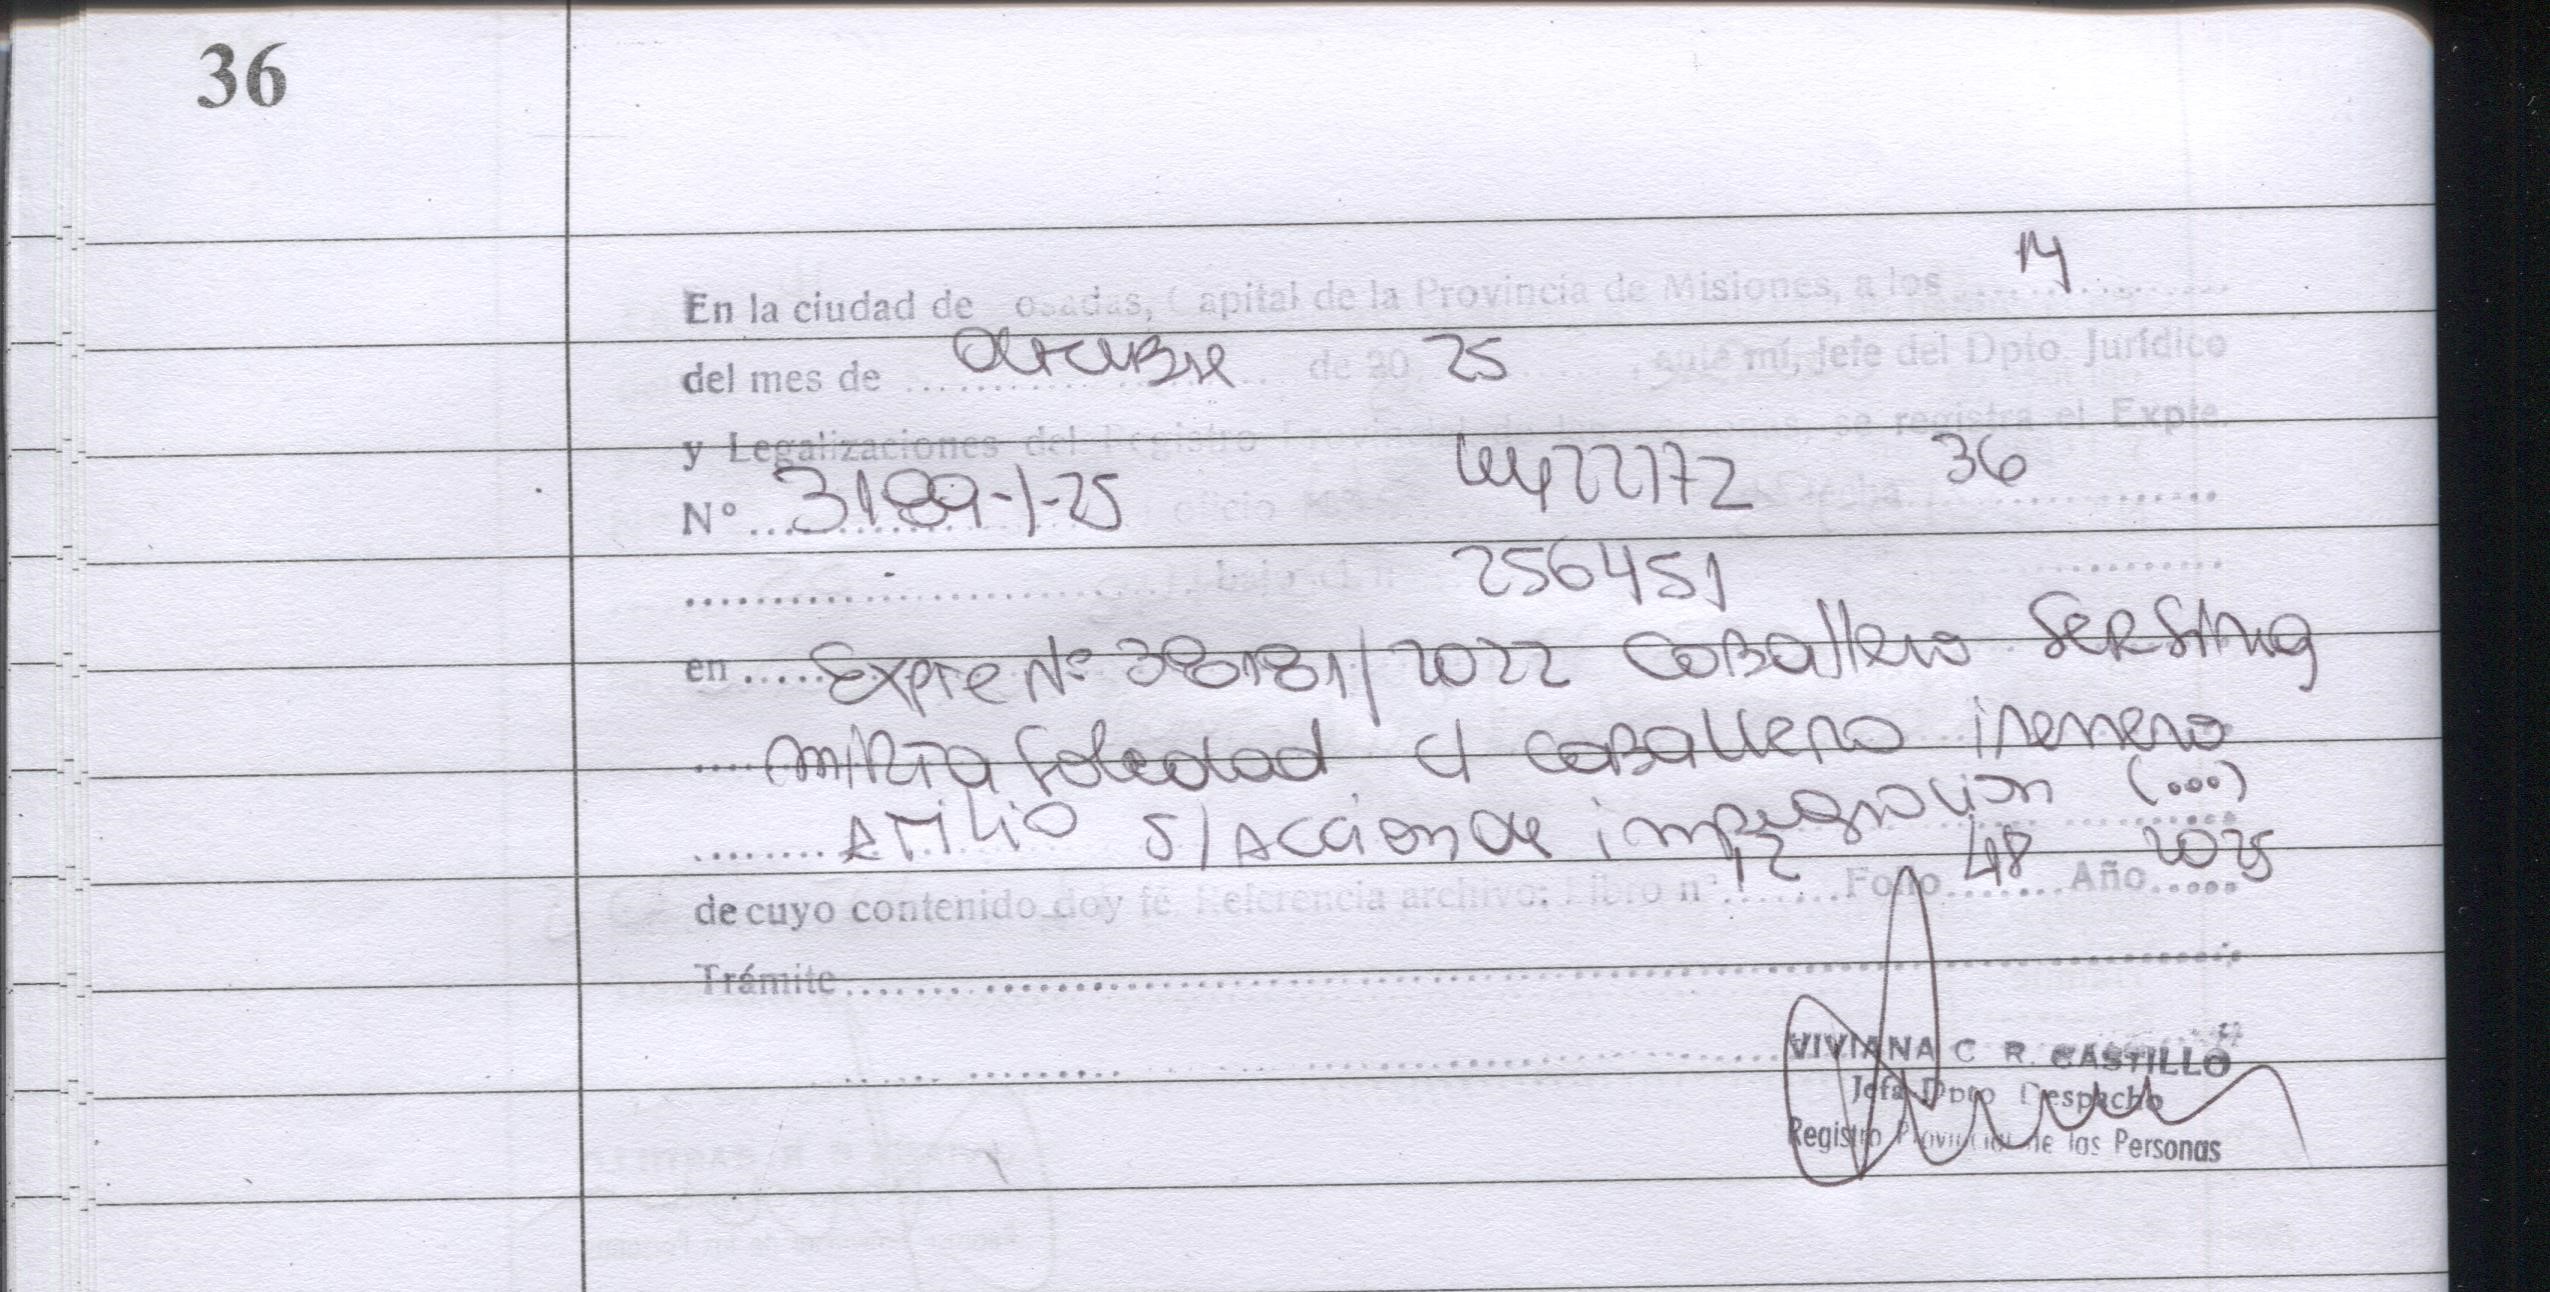 36
En la ciudad de osadas, Capital de la Provincia de Misiones, a los 14
del mes de Octubre de 20 25, ante mí, Jefe del Dpto Jurídico
y Legalizaciones del Registro se registra el Expte.
N° 3189-1-25 oficio 4422172 fecha 36
bajo el n° 256451
en Expte N° 38181/2022 Caballero
Mirta Soledad c/ Caballero ireneno
Atilio s/ Accion de impugnacion (...)
de cuyo contenido doy fé Referencia archivo: Libro n° 12 Folio 48 Año 2025
Trámite
VIVIANA C R. CASTILLO
Jefa Dpto Despacho
Registro Provincial de las Personas